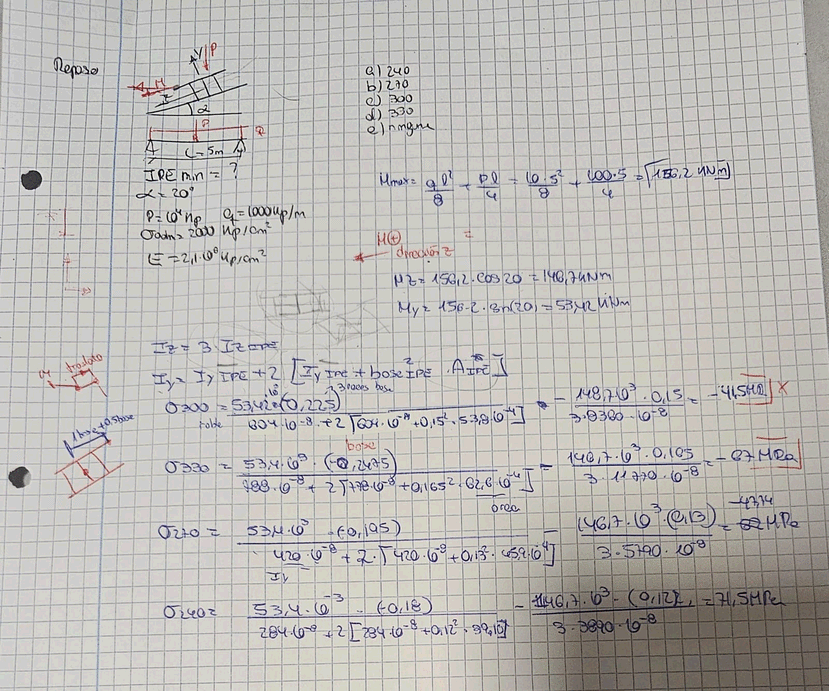 Reposo
y P
M
z
α
P
q
L=5m
IPE min = ?
α = 20°
P=10⁴ Kp q=1000Kp/m
σadm = 2000 Kp/cm²
E = 2,1·10⁶ Kp/cm²
a) 240
b) 270
c) 300
d) 330
e) ninguna
Mmax = ql²/8 + Pl/4 = 10·5²/8 + 100·5/4 = 156,2 KNm
M⊕ =
dirección z
Mz = 156,2·cos20 = 146,7KNm
My = 156.2·sin(20) = 53,42KNm
Iz = 3·Iz IPE
Iy = Iy IPE + 2 [Iy IPE + base² IPE · A IPE]
σ300 = 53,42·10³(-0,225) / 604·10⁻⁸ + 2[604·10⁻⁸ + 0,15²·53,8·10⁻⁴] - 146,7·10³·0,15 / 3·8360·10⁻⁸ = -41,5MPa x
1 base + 0,5 base
base
σ330 = 53,4·10³·(-0,2475) / 788·10⁻⁸ + 2[778·10⁻⁸ + 0,165²·62,6·10⁻⁴] - 146,7·10³·0,165 / 3·11770·10⁻⁸ = -67MPa
área
σ270 = 53,4·10³ · (-0,195) / 420·10⁻⁸ + 2·[420·10⁻⁸ + 0,13²·459·10⁻⁴] - 146,7·10³·(0,13) / 3·5790·10⁻⁸ = MPa
Iy
σ240 = 53,4·10⁻³ · (-0,18) / 284·10⁻⁸ + 2[284·10⁻⁸ + 0,12²·39,10⁻⁴] - 146,7·10³·(0,12) / 3·3890·10⁻⁸ = 71,5MPa